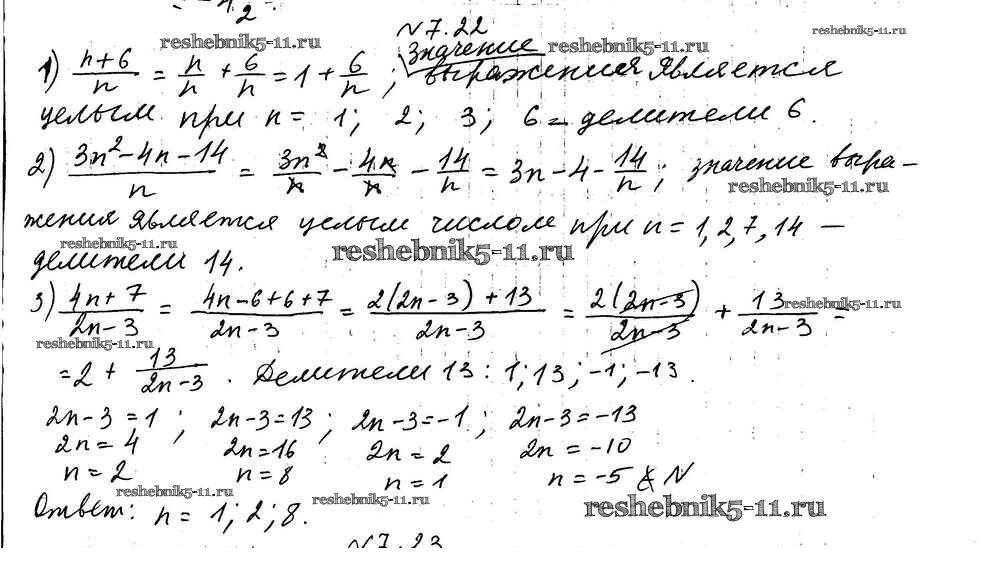 №7.22
1) (n+6)/n = n/n + 6/n = 1 + 6/n ; значение выражения является
целым при n = 1; 2; 3; 6 – делители 6.
2) (3n²-4n-14)/n = 3n²/n - 4n/n - 14/n = 3n-4-14/n ; значение выра-
жения является целым числом при n = 1, 2, 7, 14 –
делители 14.
3) (4n+7)/(2n-3) = (4n-6+6+7)/(2n-3) = (2(2n-3)+13)/(2n-3) = 2(2n-3)/(2n-3) + 13/(2n-3) =
= 2 + 13/(2n-3) . Делители 13: 1; 13; -1; -13.
2n-3=1 ; 2n-3=13 ; 2n-3=-1 ; 2n-3=-13
2n=4 2n=16 2n=2 2n=-10
n=2 n=8 n=1 n=-5 ∉ N
Ответ: n = 1; 2; 8.
№7.23
reshebnik5-11.ru
reshebnik5-11.ru
reshebnik5-11.ru
reshebnik5-11.ru
reshebnik5-11.ru
reshebnik5-11.ru
reshebnik5-11.ru
reshebnik5-11.ru
reshebnik5-11.ru
reshebnik5-11.ru
reshebnik5-11.ru